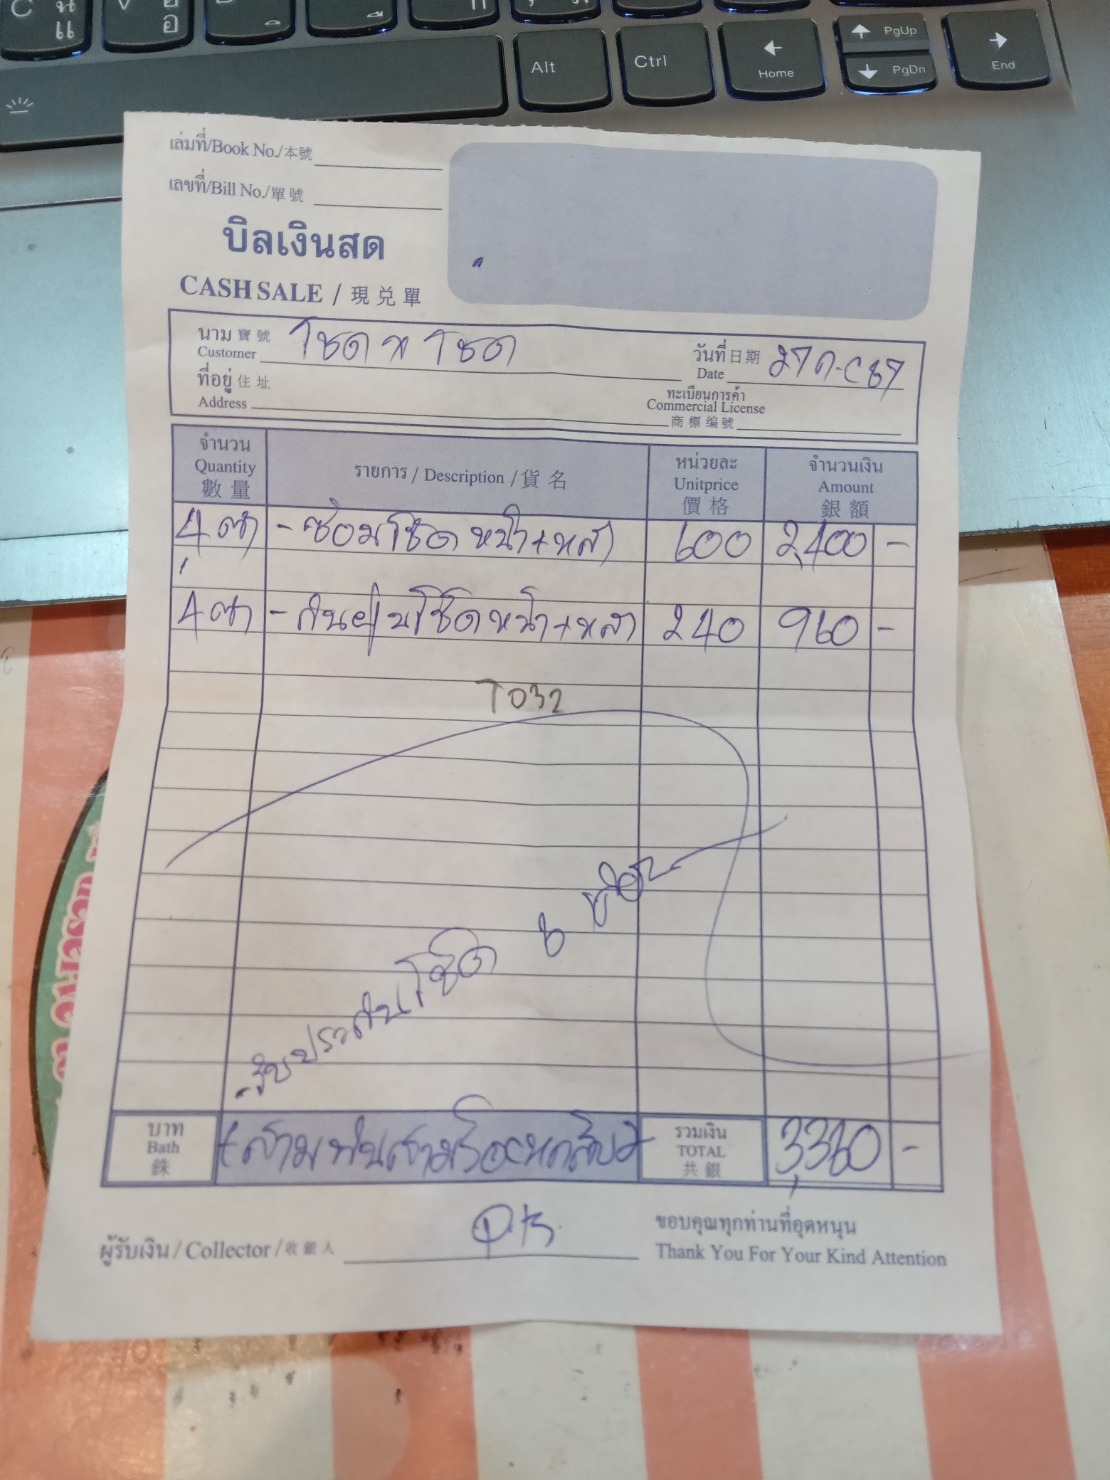 C น แ
V อ อ
PgUp
Alt
Ctrl
Home
PgDn
End
เล่มที่/Book No./本號
เลขที่/Bill No./單號
บิลเงินสด
CASH SALE / 現兑單
นาม 寶號 Customer โชค x โชค
วันที่ 日期 Date 27 ก.ค 67
ที่อยู่ 住址 Address
ทะเบียนการค้า Commercial License 商標编號
จำนวน Quantity 數量
รายการ / Description / 貨名
หน่วยละ Unitprice 價格
จำนวนเงิน Amount 銀額
4 ตัว - ซ่อมโช๊ค หน้า+หลัง 600 2,400 -
4 ตัว - กันฝุ่นโช๊คหน้า+หลัง 240 960 -
T032
รับประกันโช๊ค 6 เดือน
บาท Bath 銖
(สามพันสามร้อยหกสิบ
รวมเงิน TOTAL 共銀
3,360 -
ผู้รับเงิน / Collector / 收銀人
ขอบคุณทุกท่านที่อุดหนุน
Thank You For Your Kind Attention